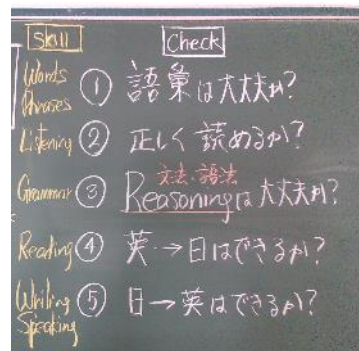 Skill Check
Words Phrases ① 語彙は大丈夫か?
Listening ② 正しく読めるか?
文法・語法
Grammar ③ Reasoningは大丈夫か?
Reading ④ 英→日はできるか?
Writing Speaking ⑤ 日→英はできるか?